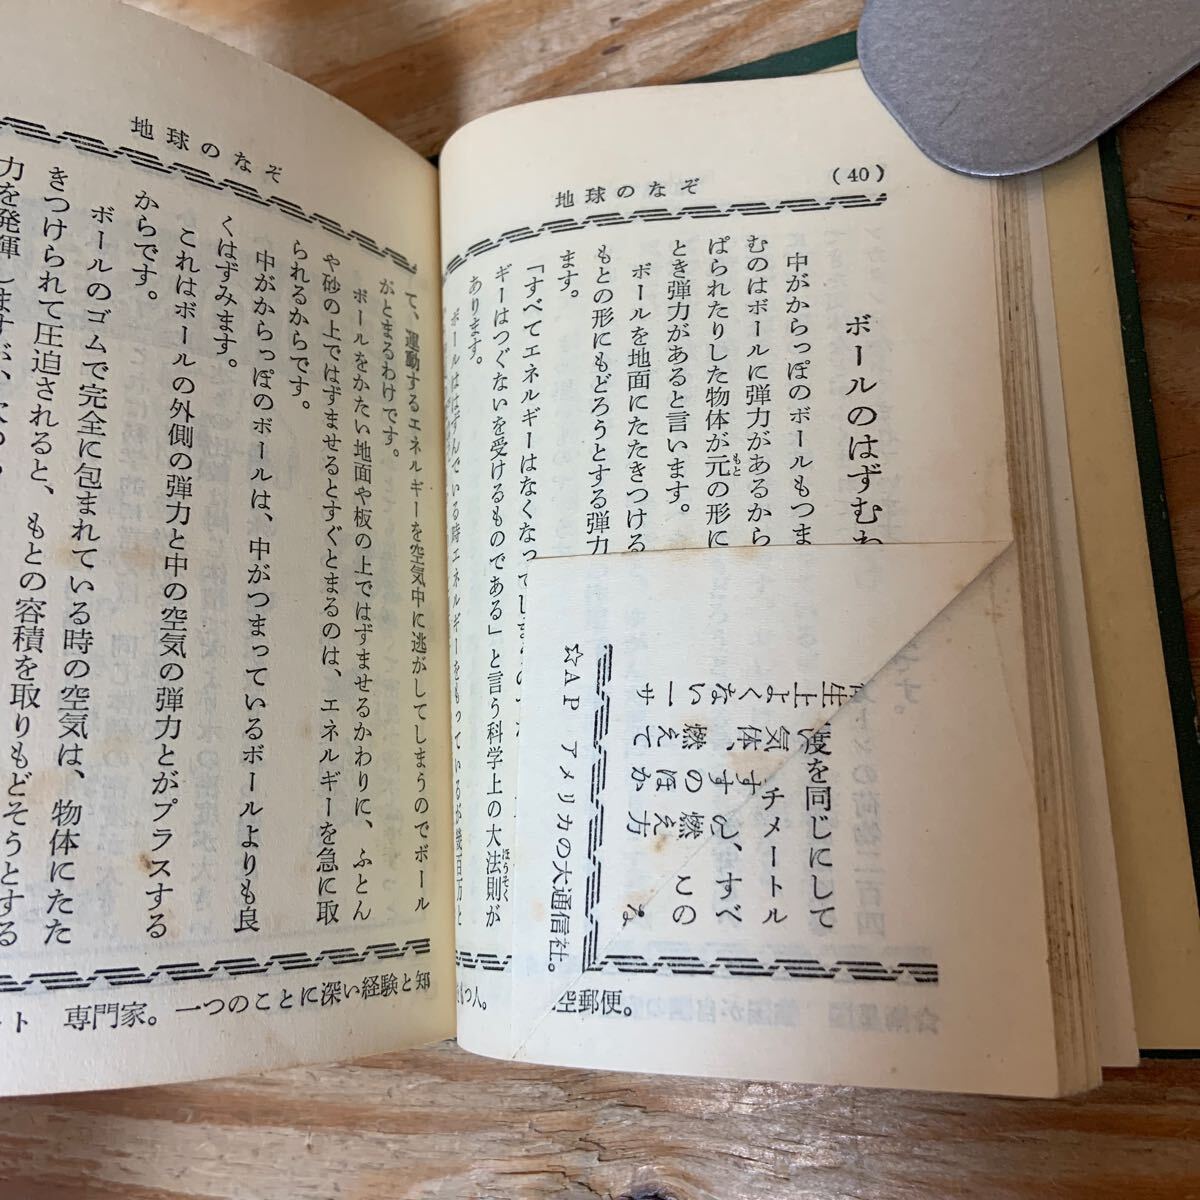 地球のなぞ
(40)
ボールのはずむわ
中がからっぽのボールもつま
むのはボールに弾力があるから
ぱられたりした物体が元の形に
もと
とき弾力があると言います。
ボールを地面にたたきつける
もとの形にもどろうとする弾力
ます。
「すべてエネルギーはなくなってしまうの
ギーはつぐないを受けるものである」と言う科学上の大法則が
ほうそく
あります。
ボールははずんでいる時エネルギーをもっているが幾百万と
つ人。
空郵便。
度を同じにして
チメートル
生上よくない一サ
気体、燃えて
すすのほか
ん、燃え方
すべ
この
る
☆AP アメリカの大通信社。
す。
トンの荷物二百四
地球のなぞ
て、運動するエネルギーを空気中に逃がしてしまうのでボール
がとまるわけです。
ボールをかたい地面や板の上ではずませるかわりに、ふとん
や砂の上ではずませるとすぐとまるのは、エネルギーを急に取
られるからです。
中がからっぽのボールは、中がつまっているボールよりも良
くはずみます。
これはボールの外側の弾力と中の空気の弾力とがプラスする
からです。
ボールのゴムで完全に包まれている時の空気は、物体にたた
きつけられて圧迫されると、もとの容積を取りもどそうとする
力を発揮しますが、
一つのことに深い経験と知
ート 専門家。